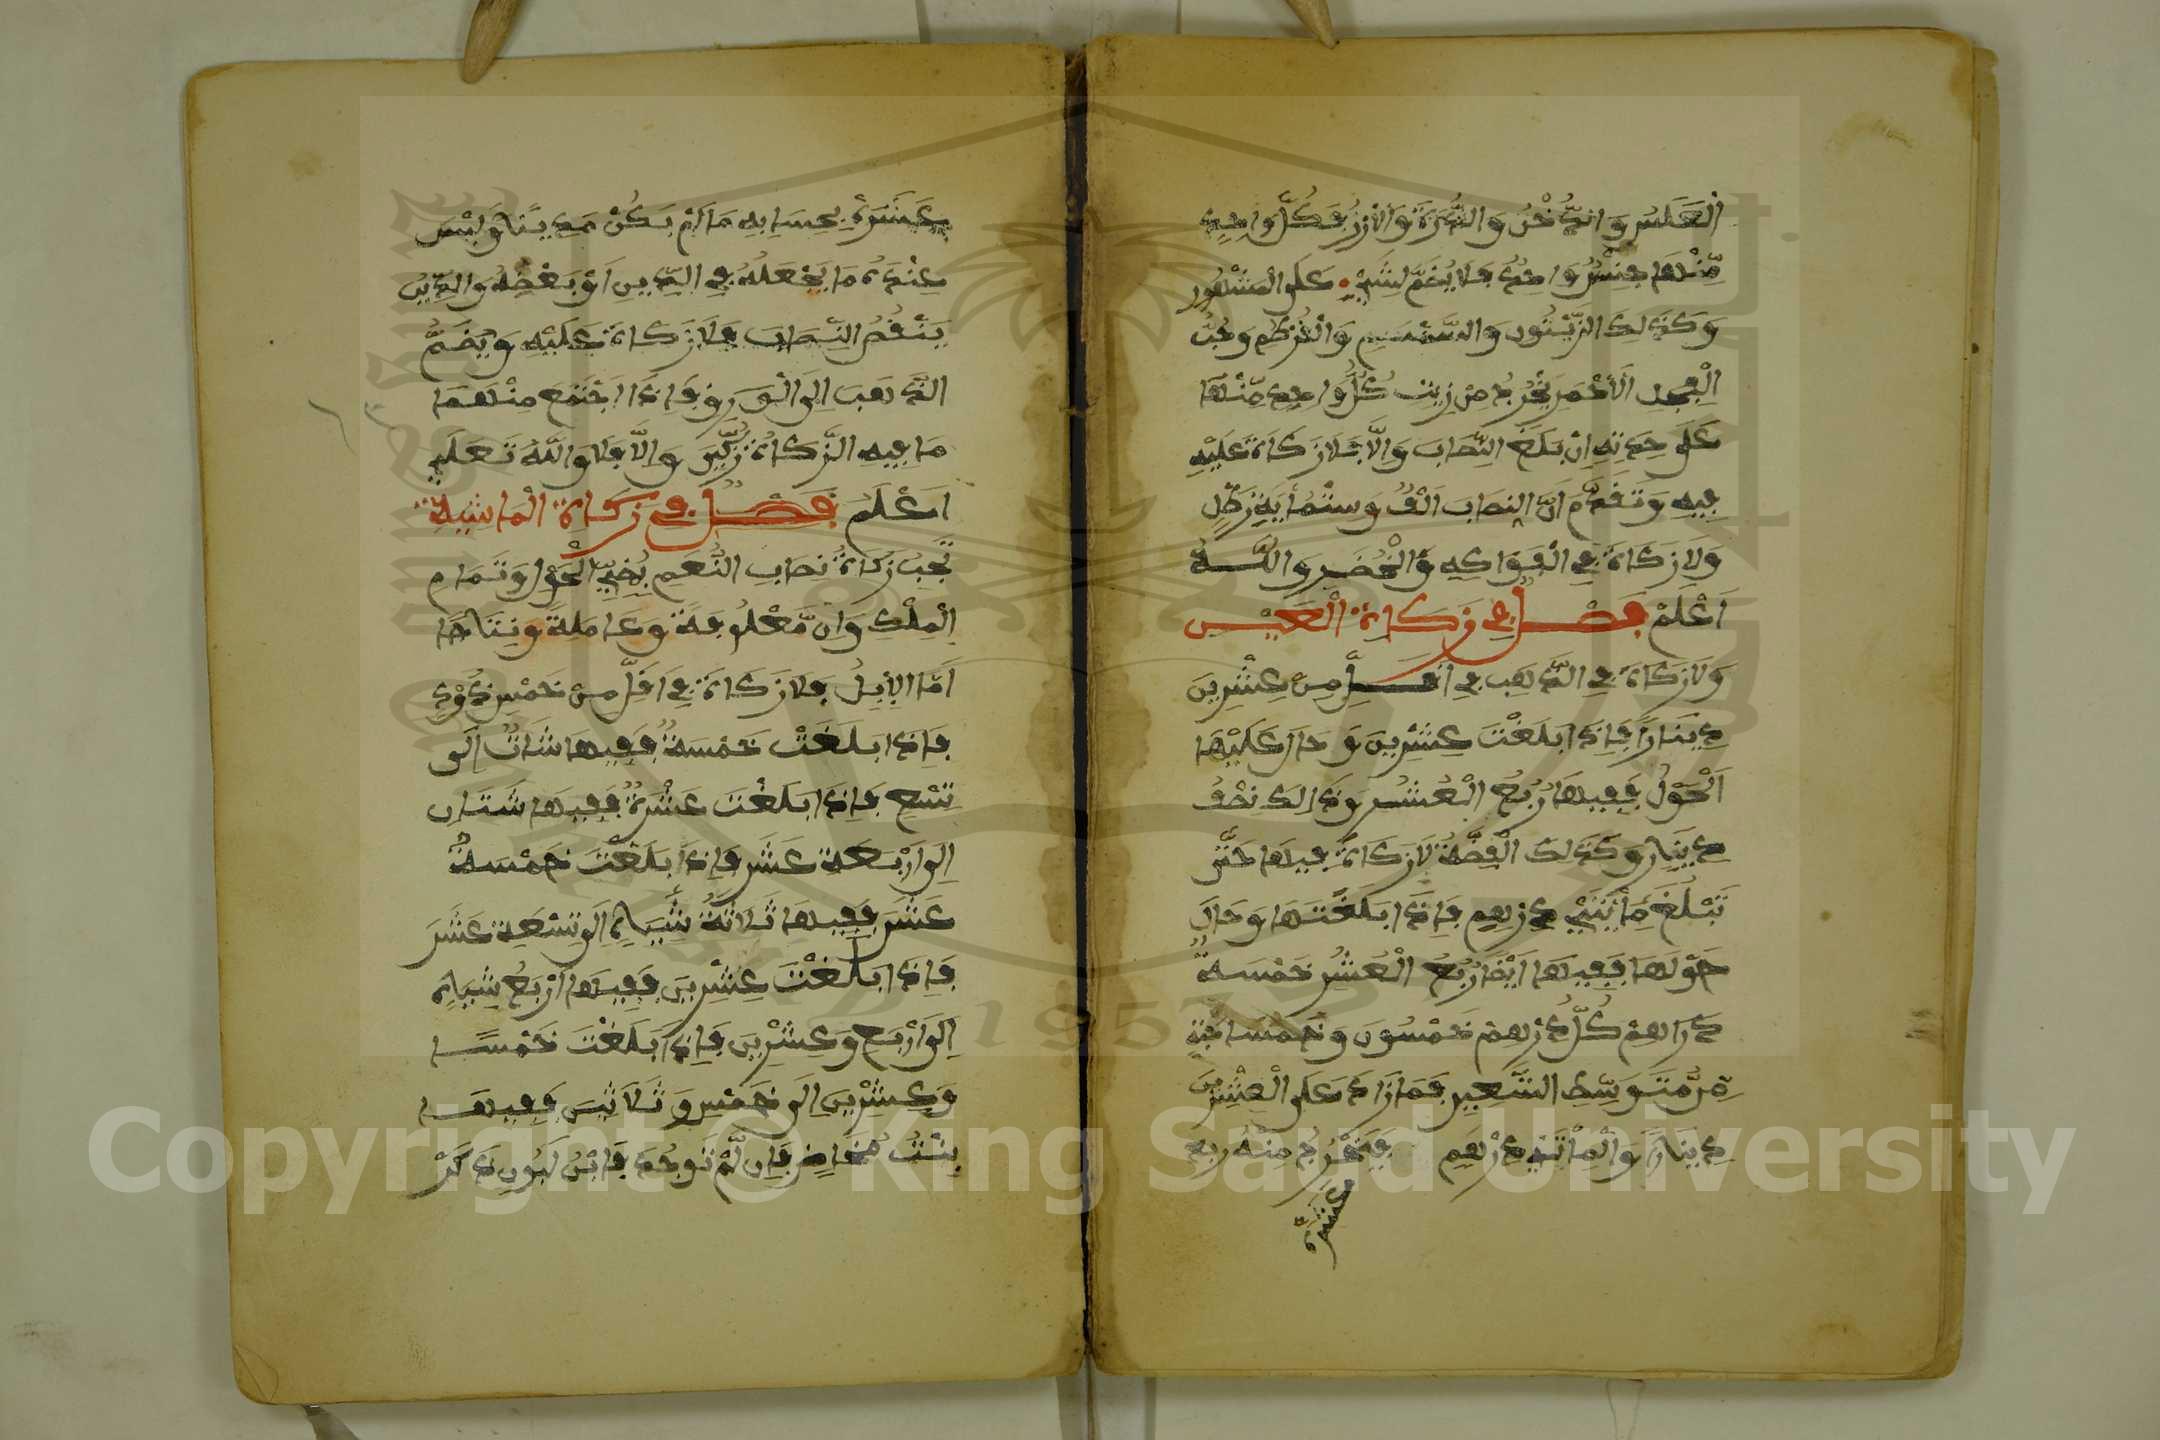 الْعَلَسِ وَالدُّخْنُ وَالذُّرَةُ وَالْأَرْزُ فَكُلُّ وَاحِدٍ
مِّنْهَا جِنْسٌ وَاحِدٌ فَلَا يُضَمُّ لِشَيْءٍ عَلَى الْمَشْهُورِ
وَكَذَلِكَ الزَّيْتُونِ وَالسِّمْسِمِ وَالْقُرْطُمِ وَحَبُّ
الْفُجْلِ الْأَحْمَرِ يُخْرَجُ مِنْ زَيْتِ كُلِّ وَاحِدٍ مِّنْهَا
عَلَى حِدَتِهِ إِنْ بَلَغَ النِّصَابَ وَإِلَّا فَلَا زَكَاةَ عَلَيْهِ
فِيهِ وَتَقَدَّمَ أَنَّ النِصَابَ أَلْفُ وَسِتُّمِائَةِ رَطْلٍ
وَلَا زَكَاةَ فِي الْفَوَاكِهِ وَالْخُضَرِ وَاللَّهُ
أَعْلَمُ فَصْلٌ فِي زَكَاةِ الْعَيْنِ
وَلَا زَكَاةَ فِي الذَّهَبِ فِي أَقَلَّ مِنْ عِشْرِينَ
دِينَارًا فَإِذَا بَلَغَتْ عِشْرِينَ وَحَالَ عَلَيْهَا
الْحَوْلُ فَفِيهَا رُبُعُ الْعُشُرِ وَذَالِكَ نِصْفُ
دِينَارٍ وَكَذَلِكَ الْفِضَّةُ لَا زَكَاةَ فِيهَا حَتَّى
تَبْلُغَ مِائَتَيْ دِرْهَمٍ فَإِذَا بَلَغَتْهَا وَحَالَ
حَوْلُهَا فَفِيهَا أَيْضًا رُبُعُ الْعُشُرِ خَمْسَةُ
دَرَاهِمَ كُلُّ دِرْهَمٍ خَمْسُونَ وَخُمُسَا حَبَّةٍ
مِّنْ مُّتَوَسِّطِ الشَّعِيرِ فَمَا زَادَ عَلَى الْعِشْرِينَ
دِينَارًا وَالْمِائَتَيْ دِرْهَمٍ فَيُخْرَجُ مِنْهُ رُبُعُ
عشره
عَشَرَهُ بِحِسَابِهِ مَا لَمْ يَكُنْ مَدِينًا وَلَيْسَ
عِنْدَهُ مَا يَجْعَلُهُ فِي الدَّيْنِ أَوْ بَعْضِهِ وَالدَّيْنُ
يَنْقُصُ النِّصَابَ فَلَا زَكَاةَ عَلَيْهِ وَيُضَمُّ
الذَّهَبُ إِلَى الْوَرِقِ فَإِذَا اجْتَمَعَ مِنْهُمَا
مَا فِيهِ الزَّكَاةُ زُكِّيَ وَإِلَّا فَلَا وَاللَّهُ تَعَلَى
أَعْلَمُ فَصْلٌ فِي زَكَاةِ الْمَاشِيَةِ
تَجِبُ زَكَاةُ نِصَابِ النَّعَمِ بِمُضِيِّ الْحَوْلِ وَتَمَامِ
الْمِلْكِ وَإِنْ مَّعْلُوفَةً وَعَامِلَةً وَنِتَاجًا
أَمَّا الْإِبِلُ فَلَا زَكَاةَ فِي أَقَلَّ مِنْ خَمْسِ ذَوْدٍ
فَإِذَا بَلَغَتْ خَمْسَةً فَفِيهَا شَاةٌ إِلَى
تِسْعٍ فَإِذَا بَلَغَتْ عَشْرَةً فَفِيهَا شَتَانِ
إِلَى أَرْبَعَةَ عَشَرَ فَإِذَا بَلَغَتْ خَمْسَةَ
عَشَرَ فَفِيهَا ثَلَاثَةُ شِيَاهٍ إِلَى تِسْعَةَ عَشَرَ
فَإِذَا بَلَغَتْ عِشْرِينَ فَفِيهَا أَرْبَعُ شِيَاهٍ
إِلَى أَرْبَعٍ وَعِشْرِينَ فَإِذَا بَلَغَتْ خَمْسًا
وَعِشْرِينَ إِلَى خَمْسٍ وَثَلَاثِينَ فَفِيهَا
بِنْتُ مَخَاضٍ فَإِنْ لَّمْ تُوجَدْ فَابْنُ لَبُونٍ ذَكَرْ
Copyright © King Saud University
1957